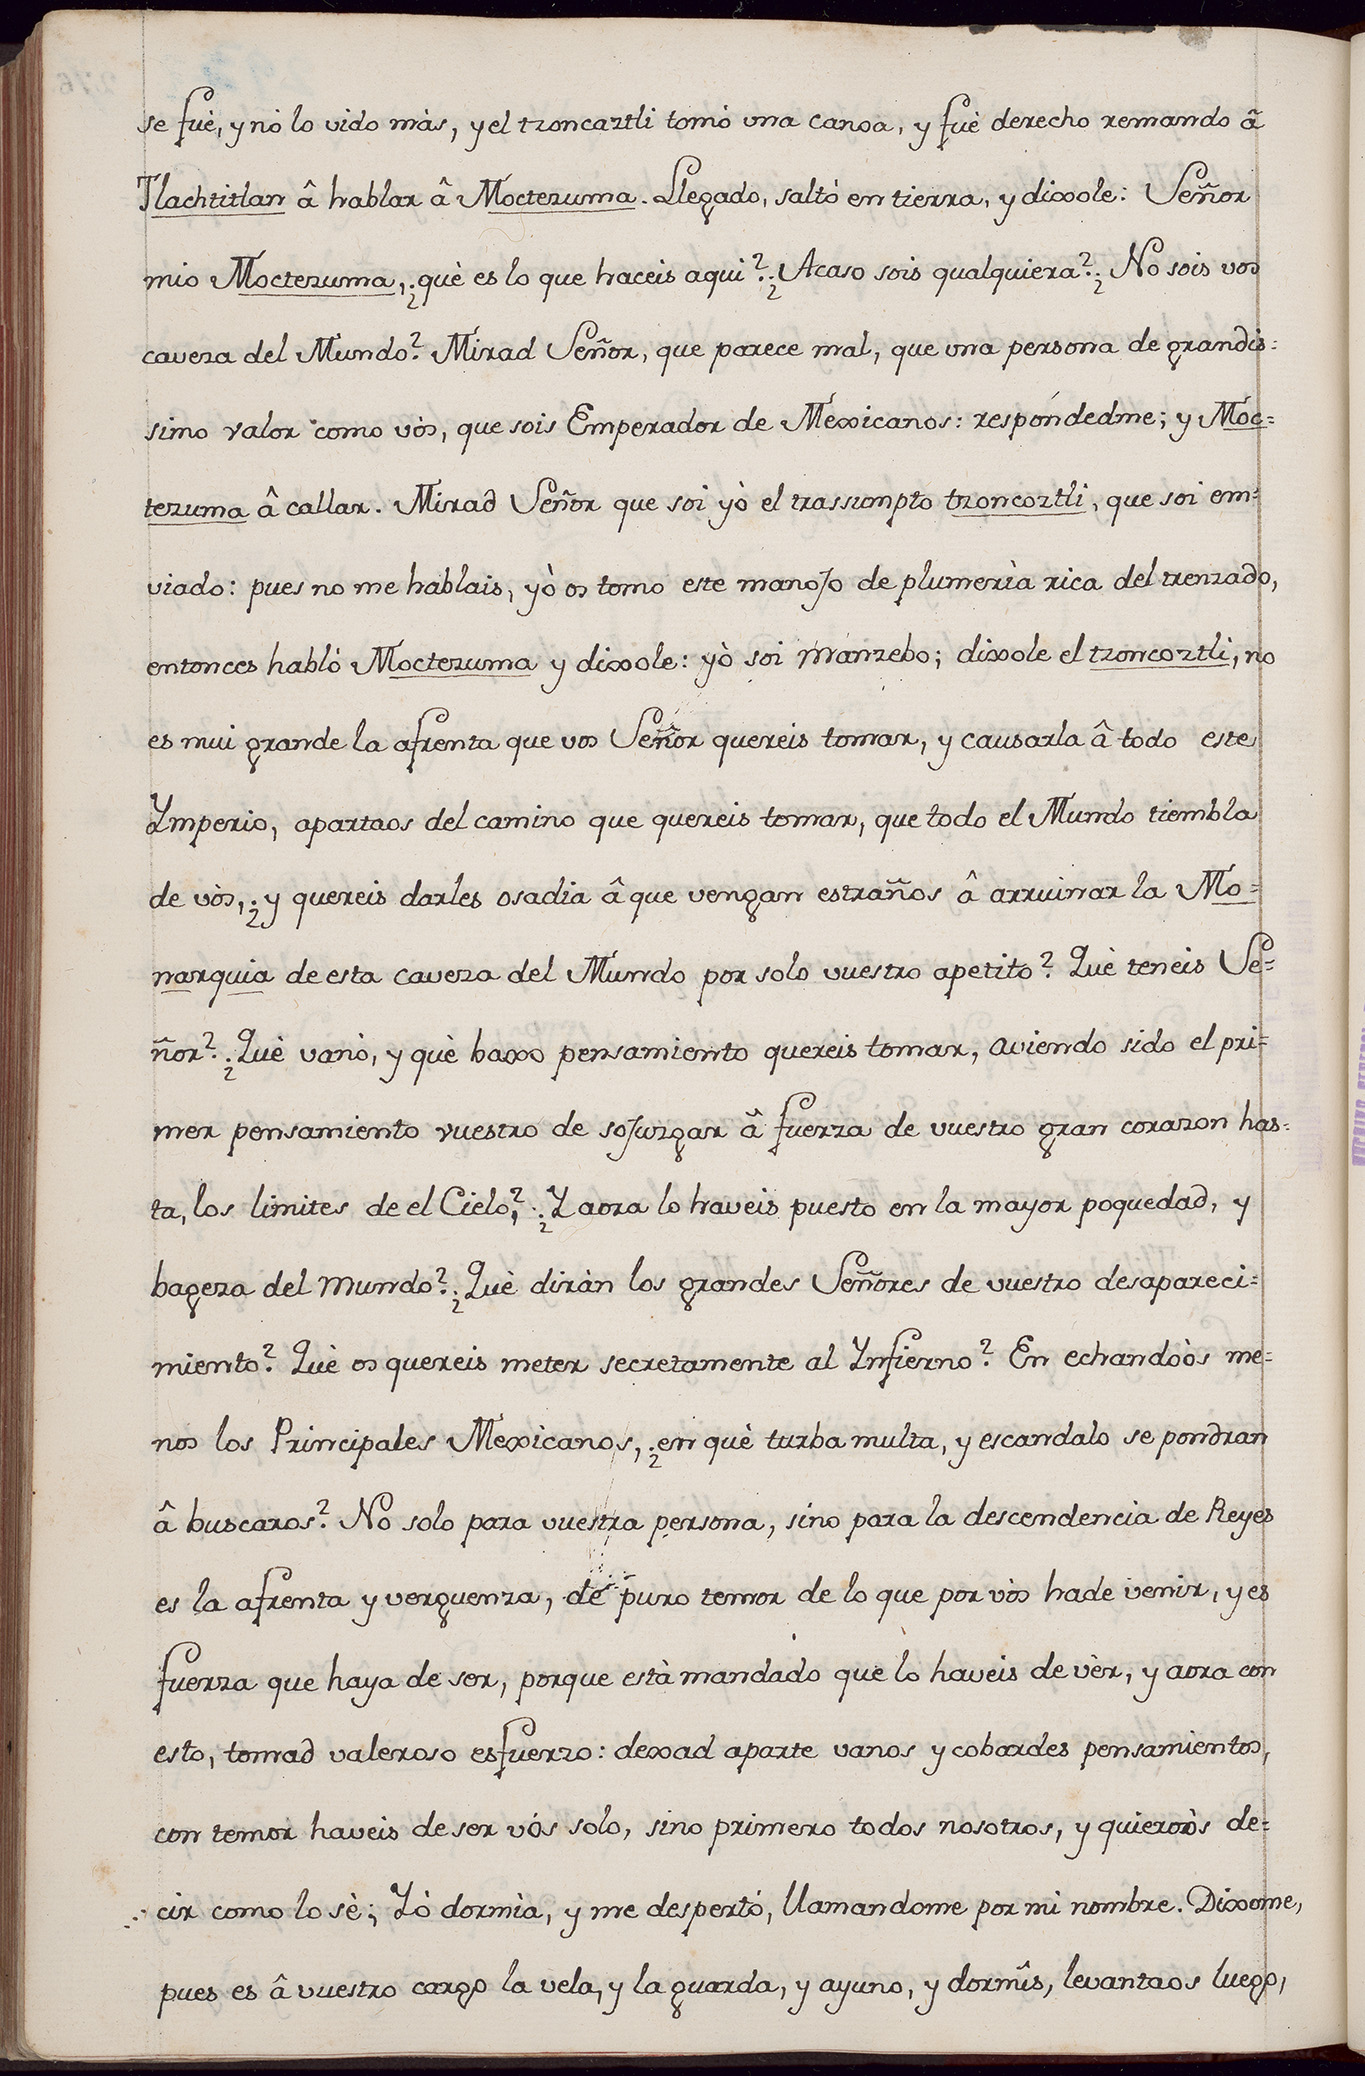 se fuè, y nò lo vido màs, y el tzoncaztli tomò una canoa, y fuè derecho remando â
Tlachtitlan â hablar â Moctezuma. Llegado, saltò en tierra, y dixole: Señor
mio Moctezuma, ¿què es lo que haceis aqui? ¿Acaso sois qualquiera? ¿No sois vos
caveza del Mundo? Mirad Señor, que parece mal, que una persona de grandis=
simo valor como vòs, que sois Emperador de Mexicanos: respóndedme; y Moc=
tezuma â callar. Mirad Señor que soi yò el trassumpto tzoncoztli, que soi em=
viado: pues no me hablais, yò os tomo este manojo de plumerìa rica del trenzado,
entonces hablò Moctezuma y dixole: yò soi manzebo; dixole el tzoncoztli, no
es mui grande la afrenta que vos Señor quereis tomar, y causarla â todo este
Ymperio, apartaos del camino que quereis tomar, que todo el Mundo tiembla
de vòs, ¿y quereis darles osadia â que vengan estraños â arruinar la Mo=
narquia de esta caveza del Mundo por solo vuestro apetito? Què teneis Se=
ñor? ¿Què vanò, y què baxo pensamiento quereis tomar, aviendo sido el pri=
mer pensamiento vuestro de sojuzgar â fuerza de vuestro gran corazon has=
ta, los limites de el Cielo,? ¿Y aora lo haveis puesto en la mayor poquedad, y
bageza del mundo? ¿Què diràn los grandes Señores de vuestro desapareci=
miento? Què os quereis meter secretamente al Ynfierno? En echandoòs me=
nos los Principales Mexicanos, ¿en què turba multa, y escandalo se pondran
â buscaros? No solo para vuestra persona, sino para la descendencia de Reyes
es la afrenta y verguenza, de puro temor de lo que por vòs hade venir, y es
fuerza que haya de ser, porque està mandado que lo haveis de vèr, y aora con
esto, tomad valeroso esfuerzo: dexad aparte vanos y cobardes pensamientos,
con temor haveis de ser vós solo, sino primero todos nosotros, y quieroòs de=
cir como lo sè; Yò dormìa, y me despertó, llamandome por mi nombre. Dixome,
pues es â vuestro cargo la vela, y la guarda, y ayuno, y dormîs, levantaos luego,